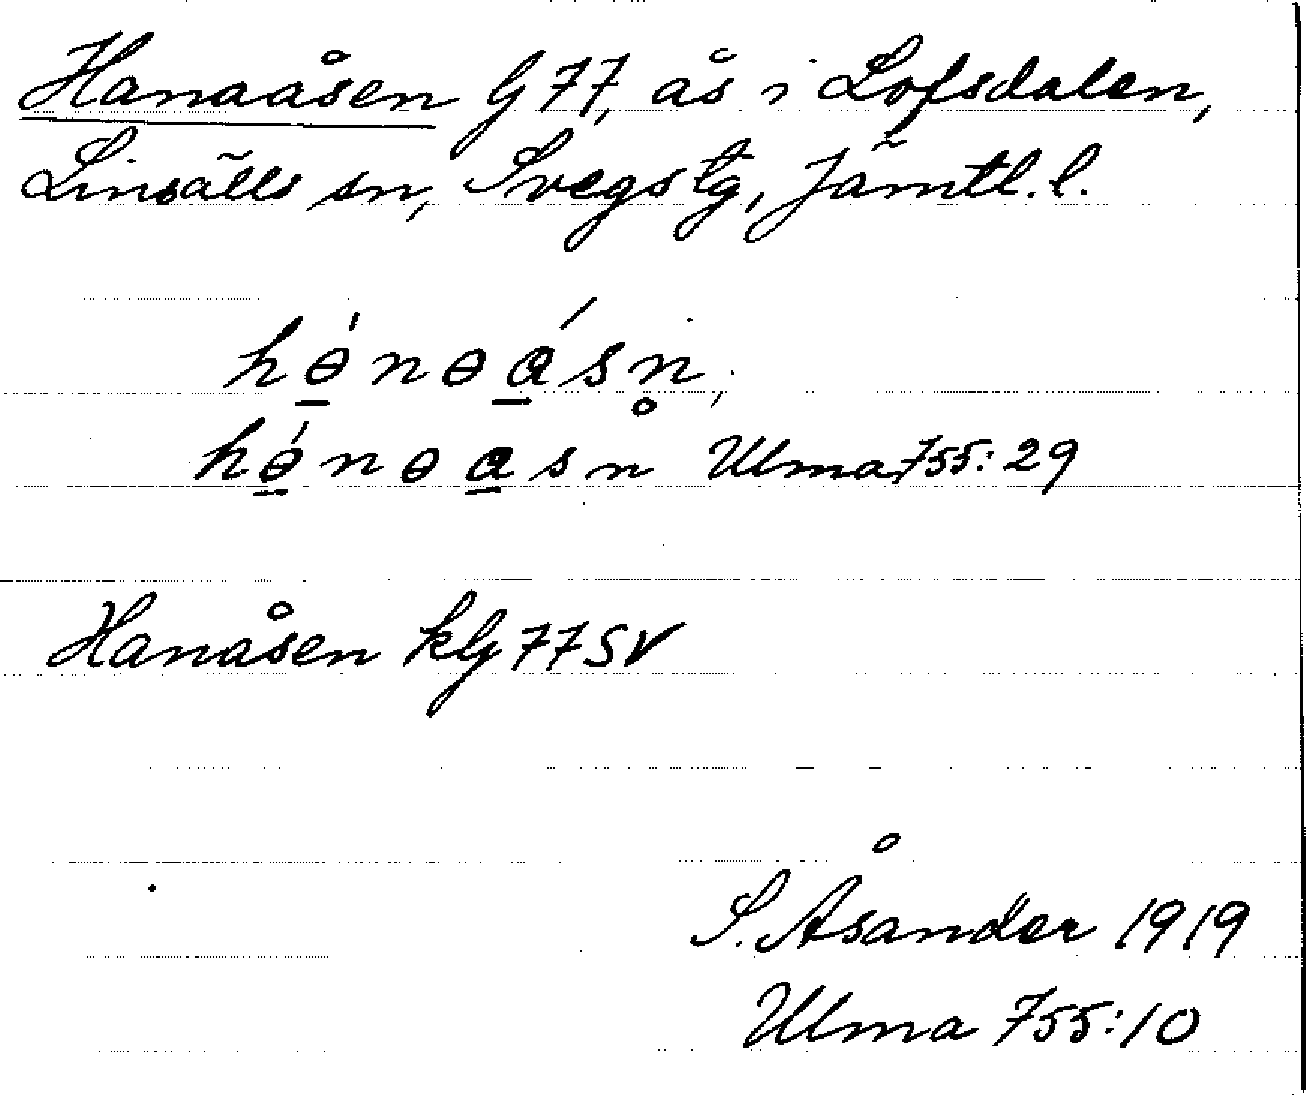 Hanaåsen G 77, ås i Lofsdalen,
Linsälls sn, Svegs tg, Jämtl. l.
hɵ̱́nɵá̱sn̥,
hɵ̱́nɵa̱sn̊ Ulma 755:29
Hanåsen kbg 77 SV
S. Åsander 1919
Ulma 755:10